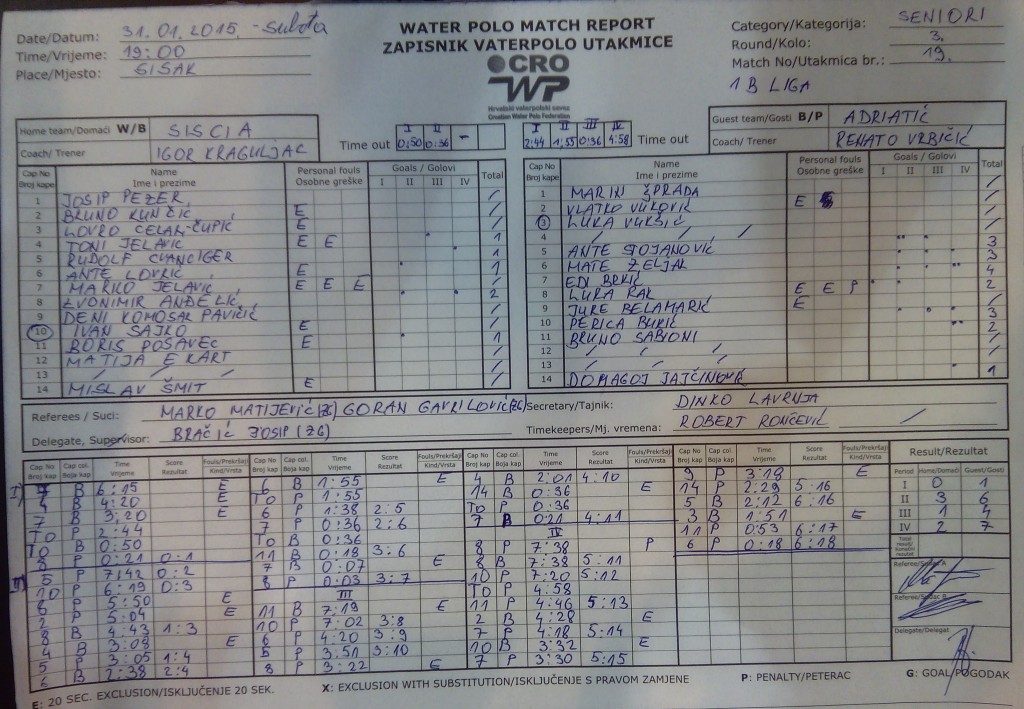 Date/Datum: 31.01.2015. - subota
Time/Vrijeme: 19:00
Place/Mjesto: SISAK
WATER POLO MATCH REPORT
ZAPISNIK VATERPOLO UTAKMICE
CRO
WP
Hrvatski vaterpolski savez
Croatian Water Polo Federation
Category/Kategorija: SENIORI
Round/Kolo: 3.
Match No/Utakmica br.: 19.
1B LIGA
Home team/Domaći W/B SISCIA
Coach/ Trener IGOR KRAGULJAC
Time out I 0:50 II 0:36 -
I 2:44 II 1:55 III 0:36 IV 4:58 Time out
Guest team/Gosti B/P ADRIATIĆ
Coach/ Trener RENATO VRBIČIĆ
Cap No Broj kape Name Ime i prezime Personal fouls Osobne greške Goals / Golovi I II III IV Total
1 JOSIP PEZER /
2 BRUNO KUNČIĆ E /
3 LOVRO CELAN-ČUPIĆ E /
4 TONI JELAVIĆ E E 1
5 RUDOLF CVANCIGER 1
6 ANTE LOVRIĆ E 1
7 MARKO JELAVIĆ E E E /
8 ZVONIMIR ANĐELIĆ 2
9 DENI KOMOSAR PAVIČIĆ /
10 IVAN SAJKO E /
11 BORIS POSAVEC E 1
12 MATIJA EKART /
13 / / / /
14 MISLAV ŠMIT E /
Cap No Broj kape Name Ime i prezime Personal fouls Osobne greške Goals / Golovi I II III IV Total
1 MARIN ŠPRADA /
2 VLATKO VUKOVIĆ E /
3 LUKA VUKŠIĆ /
4 / / / /
5 ANTE STOJANOVIĆ 3
6 MATE ZELJAK 3
7 EDI BRKIĆ 4
8 LUKA RAK E E P 2
9 JURE BELAMARIĆ E /
10 PERICA BUKIĆ 3
11 BRUNO SABIONI 2
12 / / / /
13 / / / /
14 DOMAGOJ JAJČINOVIĆ 1
Referees / Suci: MARKO MATIJEVIĆ (ZG) GORAN GAVRILOVIĆ (ZG)
Delegate, Supervisor: BRAČIĆ JOSIP (ZG)
Secretary/Tajnik: DINKO LAVRNJA
Timekeepers/Mj. vremena: ROBERT RONČEVIĆ /
Cap No Broj kap Cap col. Boja kap Time Vrijeme Score Rezultat Fouls/Prekršaji Kind/Vrsta
I) 7 B 6:15 E
4 B 4:20 E
7 B 3:20 E
TO P 2:44
TO B 0:50
8 P 0:21 0:1
II) 5 P 7:42 0:2
10 P 6:19 0:3
6 B 5:50 E
2 P 5:04 E
8 B 4:43 1:3
4 B 3:08 E
5 P 3:05 1:4
6 B 2:38 2:4
6 B 1:55 E
TO P 1:55
6 P 1:38 2:5
7 P 0:36 2:6
TO B 0:36
11 B 0:18 3:6
7 B 0:07 E
8 P 0:03 3:7
III
11 B 7:19 E
10 P 7:02 3:8
6 P 4:20 3:9
5 P 3:51 3:10
8 P 3:22 E
4 B 2:01 4:10
14 B 0:36 E
TO P 0:36
7 P 0:21 4:11
IV
8 P 7:38 P
8 B 7:38 5:11
10 P 7:20 5:12
TO P 4:58
11 P 4:46 5:13
2 B 4:28 E
7 P 4:18 5:14
10 B 3:32 E
7 P 3:30 5:15
9 P 3:18 E
14 P 2:29 5:16
5 B 2:12 6:16
3 B 1:51 E
11 P 0:53 6:17
6 P 0:18 6:18
Result/Rezultat
Period Home/Domaći Guest/Gosti
I 0 1
II 3 6
III 1 4
IV 2 7
Referee/Sudac A
Referee/Sudac B
Delegate/Delegat
E: 20 SEC. EXCLUSION/ISKLJUČENJE 20 SEK.
X: EXCLUSION WITH SUBSTITUTION/ISKLJUČENJE S PRAVOM ZAMJENE
P: PENALTY/PETERAC
G: GOAL/POGODAK